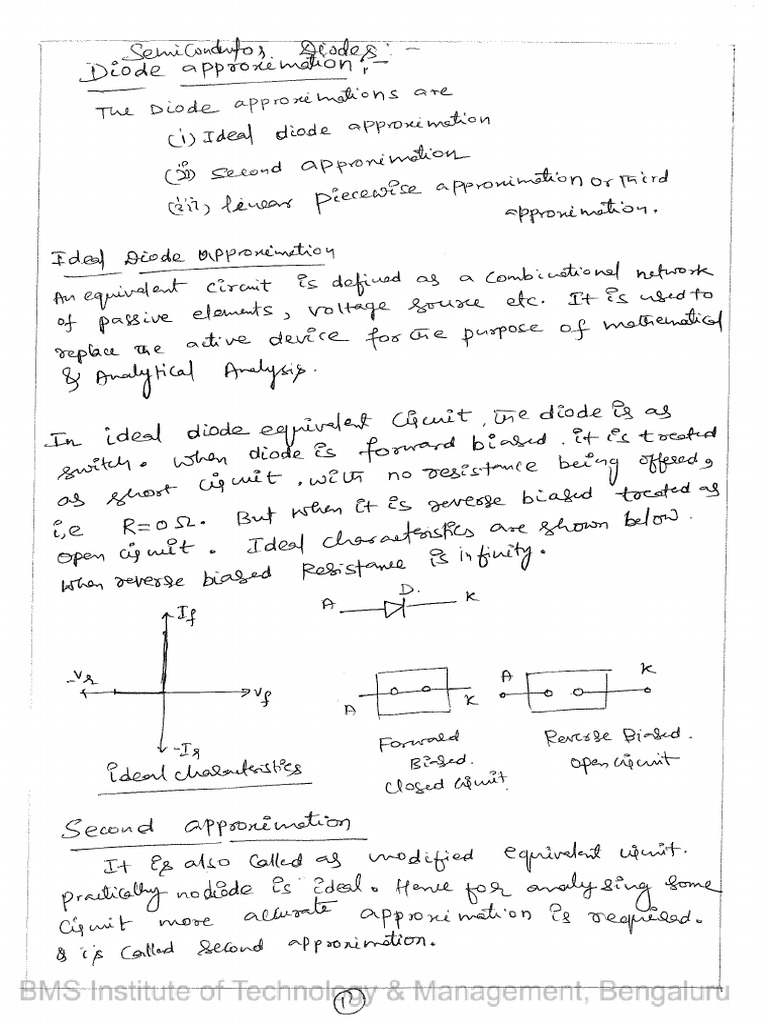 Semiconductor Diodes:-
Diode approximation:-
The Diode approximations are
(i) Ideal diode approximation
(ii) Second approximation
(iii) linear piecewise approximation or third
approximation.
Ideal Diode approximation
An equivalent circuit is defined as a combinational network
of passive elements, voltage source etc. It is used to
replace the active device for the purpose of mathematical
& Analytical Analysis.
In ideal diode equivalent circuit, the diode is as
switch. When diode is forward biased. it is treated
as short circuit, with no resistance being offered,
i,e R=0Ω. But when it is reverse biased treated as
open circuit. Ideal characteristics are shown below.
When reverse biased Resistance is infinity.
If
-Vr
Vf
-Ir
ideal characteristics
A D. K
A K
Forward
Biased.
Closed circuit
A K
Reverse Biased.
Open circuit
Second approximation
It is also called as modified equivalent circuit.
Practically no diode is ideal. Hence for analysing some
Circuit more accurate approximation is required.
& is called second approximation.
BMS Institute of Technology & Management, Bengaluru